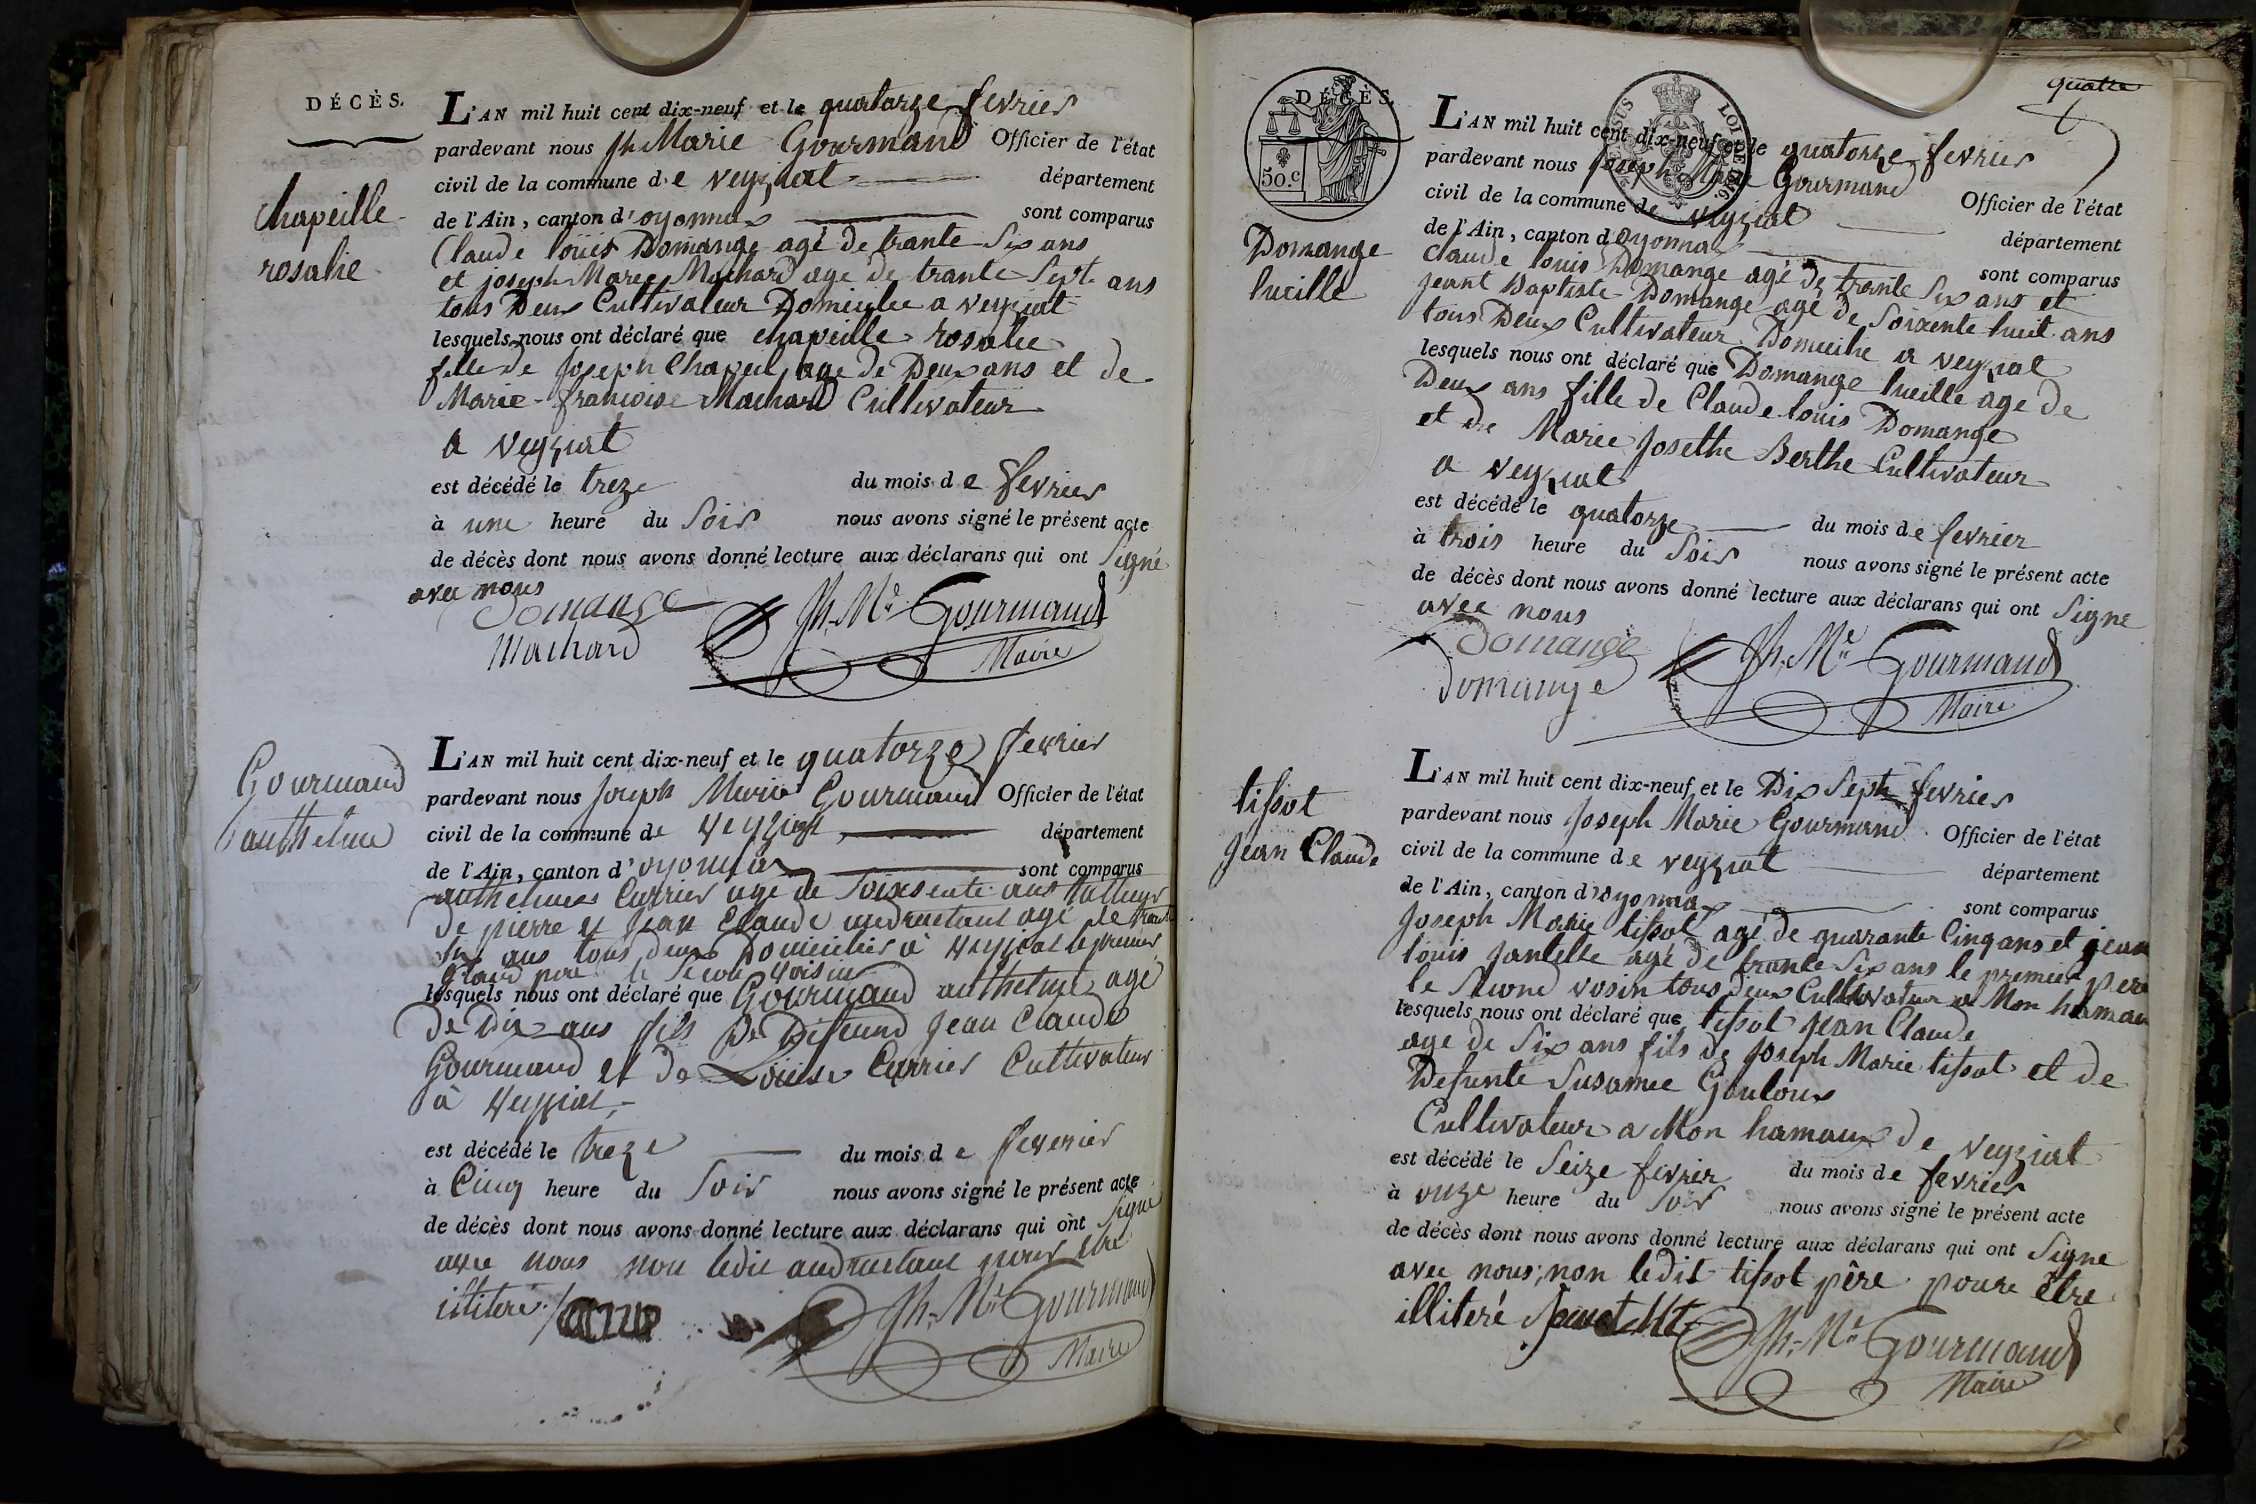 DÉCÈS.
Chapeille
rosalie
L'AN mil huit cent dix-neuf et le quatorze fevrier
pardevant nous Jh Marie Gourmand Officier de l'état
civil de la commune de veyziat département
de l'Ain, canton d'oyonnax sont comparus
Claude loüis Domange agé de trante Six ans
et joseph Marie Machard age de trante Sept ans
tous Deux Cultivateur Domicilie a veyziat
lesquels nous ont déclaré que chapeille rosalie
fille de Joseph Chapeil, age de Deux ans et de
Marie-francoise Machard Cultivateur
a veyziat
est décédé le treze du mois de fevrier
à une heure du Soir nous avons signé le présent acte
de décès dont nous avons donné lecture aux déclarans qui ont Signé
avec nous
Domange
Machard
Jh. Me Gourmand
Maire
Gourmand
anthelme
L'AN mil huit cent dix-neuf et le quatorze fevrier
pardevant nous Joseph Marie Gourmand Officier de l'état
civil de la commune de veyziat département
de l'Ain, canton d'oyonnax sont comparus
anthelme Currier age de Soixsente ans
de pierre et Jean Claude andructant agé de trante
Six ans tous deux Domicilies à veyziat le premier
Grand pere le Secon voisin
lesquels nous ont déclaré que Gourmand anthelme agé
de Dix ans fils De Defeund Jean Claude
Gourmand et de Loüise Currier Cultivateur
à veyziat
est décédé le treze du mois de feverier
à Cinq heure du Soir nous avons signé le présent acte
de décès dont nous avons donné lecture aux déclarans qui ont Signe
avec nous non ledit andructant pour etre
illiteré
Jh. Me Gourmand
Maire
quatre
DÉCÈS.
50.c
LOI DE 1816.
Domange
lucille
L'AN mil huit cent dix-neuf et le quatorze fevrier
pardevant nous Joseph Marie Gourmand Officier de l'état
civil de la commune de veyziat département
de l'Ain, canton d'oyonnax sont comparus
Claude louis Domange agé de trante Six ans et
jeant Baptiste Domange agé de Soixente huit ans
tous Deux Cultivateur Domicilie a veyziat
lesquels nous ont déclaré que Domange lucille age de
Deux ans fille de Claude louis Domange
et de Marie Josethe Berthe Cultivateur
a veyziat
est décédé le quatorze du mois de fevrier
à trois heure du Soir nous avons signé le présent acte
de décès dont nous avons donné lecture aux déclarans qui ont Signe
avec nous
Domange
Domange
Jh. Me Gourmand
Maire
tissot
Jean Claude
L'AN mil huit cent dix-neuf et le Dix Sept fevrier
pardevant nous Joseph Marie Gourmand Officier de l'état
civil de la commune de veyziat département
de l'Ain, canton d'oyonnax sont comparus
Joseph Marie tissot agé de quarante Cinq ans et jean
louis Jantelle agé de trante Six ans le premier pere
le Second vosin tous deux Cultivateur a Mon hamau
lesquels nous ont déclaré que tissot Jean Claude
age de Six ans fils de Joseph Marie tissot et de
Defunte Susanne Gouloux
Cultivateur a Mon hamaux de veyziat
est décédé le Seize fevrier du mois de fevrier
à onze heure du Soir nous avons signé le présent acte
de décès dont nous avons donné lecture aux déclarans qui ont Signe
avec nous, non ledit tissot père poure être
illiteré
Jh. Me Gourmand
Maire